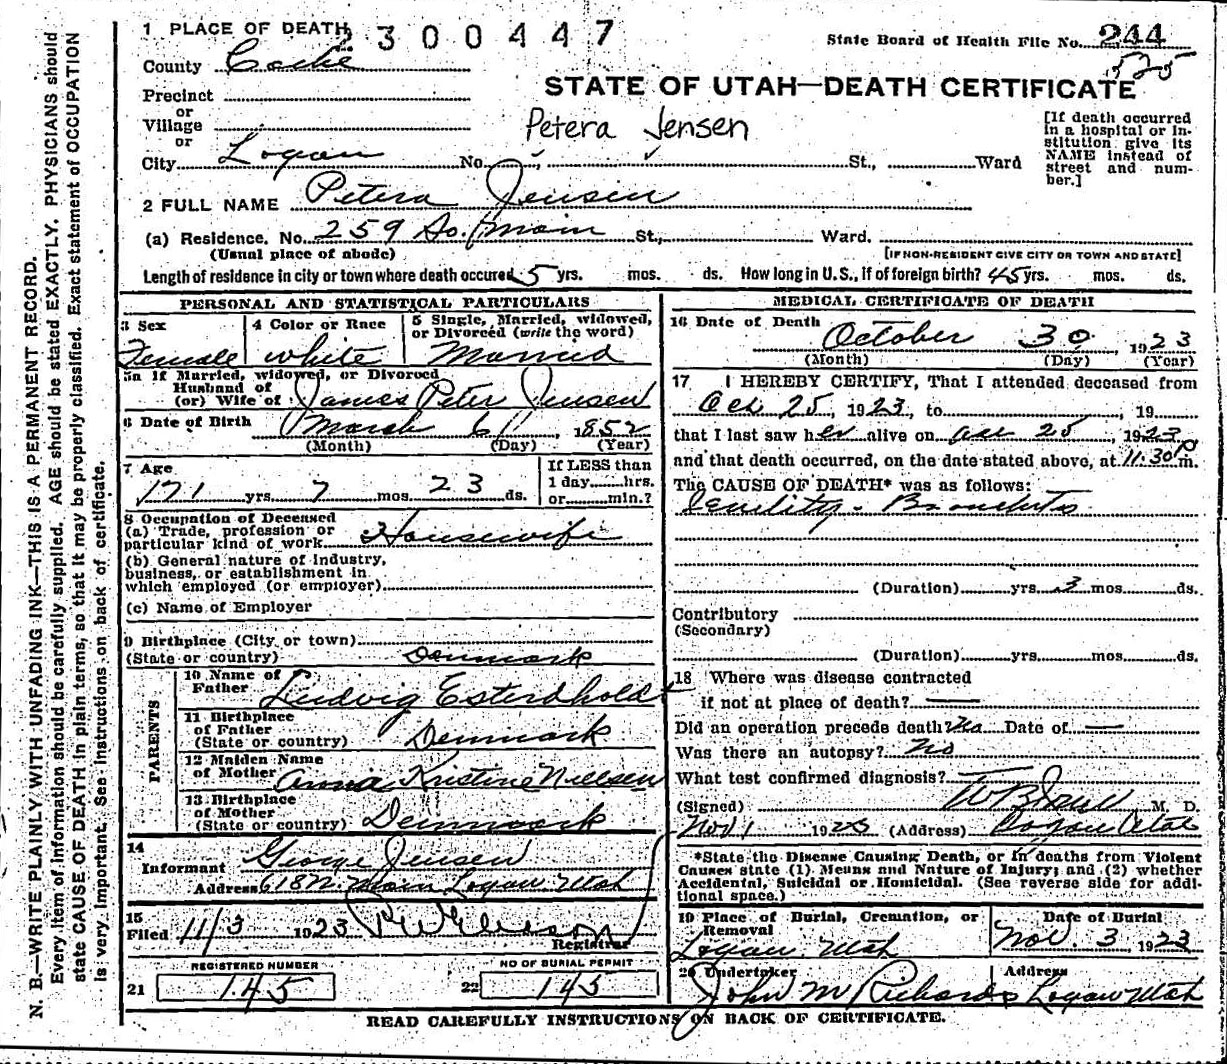 N. B.—WRITE PLAINLY WITH UNFADING INK—THIS IS A PERMANENT RECORD.
Every item of information should be carefully supplied. AGE should be stated EXACTLY. PHYSICIANS should
state CAUSE OF DEATH in plain terms, so that it may be properly classified. Exact statement of OCCUPATION
is very important. See instructions on back of certificate.
1 PLACE OF DEATH
2300447
State Board of Health File No. 244
525
County Cache
STATE OF UTAH—DEATH CERTIFICATE
Precinct
or
Village
or
Petera Jensen
[If death occurred
in a hospital or in-
stitution give its
NAME instead of
street and num-
ber.]
City Logan No. St., Ward
2 FULL NAME Petera Jensen
(a) Residence. No. 259 So. Main St., Ward.
(Usual place of abode) [IF NON-RESIDENT GIVE CITY OR TOWN AND STATE]
Length of residence in city or town where death occured 5 yrs. mos. ds. How long in U.S., if of foreign birth? 45 yrs. mos. ds.
PERSONAL AND STATISTICAL PARTICULARS
3 Sex 4 Color or Race 5 Single, Married, widowed,
or Divorced (write the word)
Female white Married
5a If Married, widowed, or Divorced
Husband of
(or) Wife of James Peter Jensen
6 Date of Birth March 6 1852
(Month) (Day) (Year)
7 Age If LESS than
1 day hrs.
71 yrs 7 mos 23 ds. or min.?
8 Occupation of Deceased
(a) Trade, profession or
particular kind of work Housewife
(b) General nature of industry,
business, or establishment in
which employed (or employer)
(c) Name of Employer
9 Birthplace (City or town)
(State or country) Denmark
PARENTS
10 Name of
Father Ludvig Esterdholdt
11 Birthplace
of Father
(State or country) Denmark
12 Maiden Name
of Mother Anna Kristine Nielsen
13 Birthplace
of Mother
(State or country) Denmark
14
Informant George Jensen
Address 618 N. Main Logan Utah
15
Filed 11/3 1923
Registrar
REGISTERED NUMBER NO OF BURIAL PERMIT
21 145 22 145
MEDICAL CERTIFICATE OF DEATH
16 Date of Death October 30, 1923
(Month) (Day) (Year)
17 I HEREBY CERTIFY, That I attended deceased from
Oct 25, 1923, to , 19
that I last saw her alive on 25, 1923
and that death occurred, on the date stated above, at 11:30 p m.
The CAUSE OF DEATH* was as follows:
Senility - Bronchitis
(Duration) yrs 3 mos ds.
Contributory
(Secondary)
(Duration) yrs mos ds.
18 Where was disease contracted
if not at place of death? —
Did an operation precede death? No Date of —
Was there an autopsy? No
What test confirmed diagnosis?
(Signed) M. D.
Nov 1 1923 (Address) Logan Utah
*State the Disease Causing Death, or in deaths from Violent
Causes state (1) Means and Nature of Injury; and (2) whether
Accidental, Suicidal or Homicidal. (See reverse side for addi-
tional space.)
19 Place of Burial, Cremation, or
Removal Date of Burial
Logan Utah Nov 3 1923
20 Undertaker Address
John M Richards Logan Utah
READ CAREFULLY INSTRUCTIONS ON BACK OF CERTIFICATE.